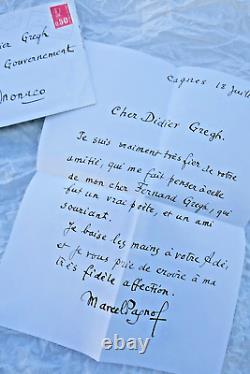 ier Gregh
Gouvernement
onaco
0.80
Cagnes 12 Juill
Cher Didier Gregh.
Je suis vraiment très fier de votre
amitié, qui me fait penser à celle
de mon cher Fernand Gregh, qui
fut un vrai poète, et un ami
souriant.
Je baise les mains à votre Adé,
et je vous prie de croire à ma
très fidèle affection.
Marcel Pagnol